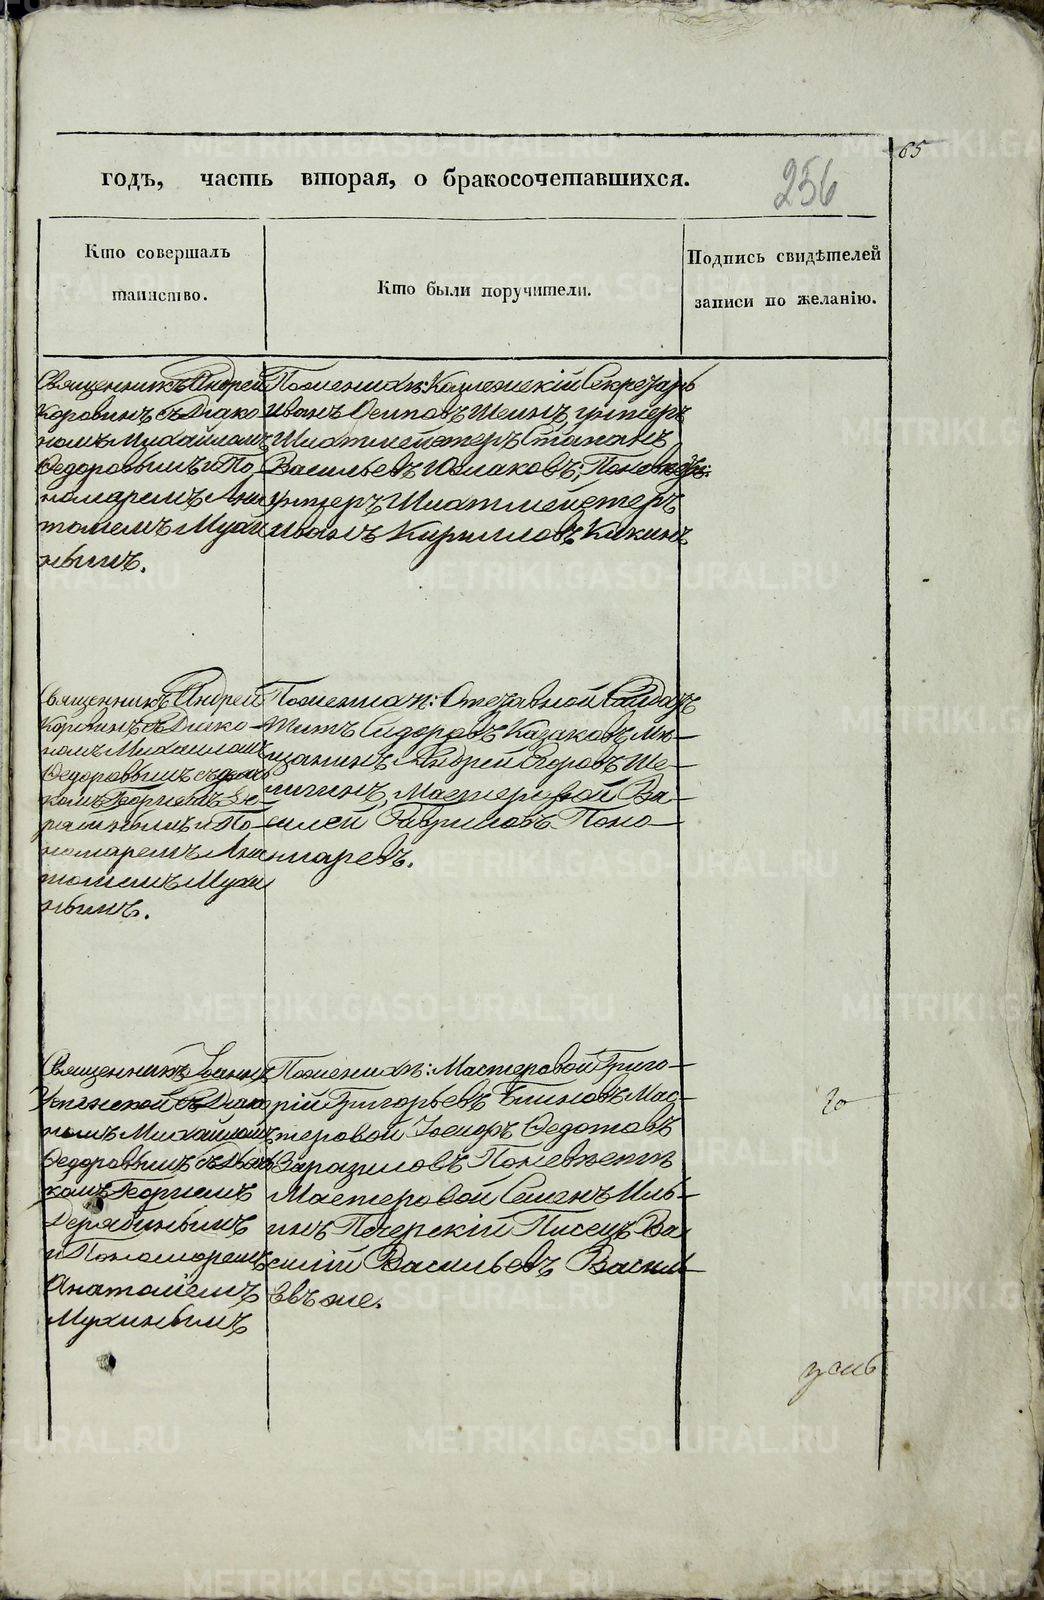 65
годъ, часть вторая, о бракосочетавшихся.
256
Кто совершалъ
таинство.
Кто были поручители.
Подпись свидѣтелей
записи по желанію.
Священникъ Андрей
Коровинъ съ Діако
номъ Михайломъ
Федоровымъ и По
номаремъ Ана
толіемъ Мухи
нымъ.
По женихѣ: Коллежскій Секретарь
Иванъ Осиповъ Шеинъ, унтеръ
Шихтмейстеръ Степанъ
Васильевъ Юшаковъ; По невѣстѣ:
унтеръ Шихтмейстеръ
Иванъ Кирилловъ Кикинъ
Священникъ Андрей
Коровинъ съ Діако-
номъ Михаиломъ
Федоровымъ съ дьяч
комъ Георгіемъ Де-
рябинымъ и По-
номаремъ Ана
толіемъ Мухи
нымъ.
По женихѣ: Отставной Солдатъ
Титъ Сидоровъ Казаковъ, Мѣ-
щанинъ Андрей Егоровъ
Мастеровой Ва-
силей Гавриловъ Поно-
маревъ.
Священникъ Іоаннъ
Успенской съ Діако
номъ Михаиломъ
Федоровымъ съ Дьяч
комъ Георгіемъ
Дерябинымъ
и Пономаремъ
Анатоліемъ
Мухинымъ
По женихѣ: Мастеровой Григо-
рій Григорьевъ Блиновъ Мас-
теровой Іосифъ Федотовъ
Заразиловъ По невѣстѣ
Мастеровой Семенъ Иль-
инъ Печерскій Писецъ Ва
силій Васильевъ Василь-
евъ же.
METRIKI.GASO-URAL.RU